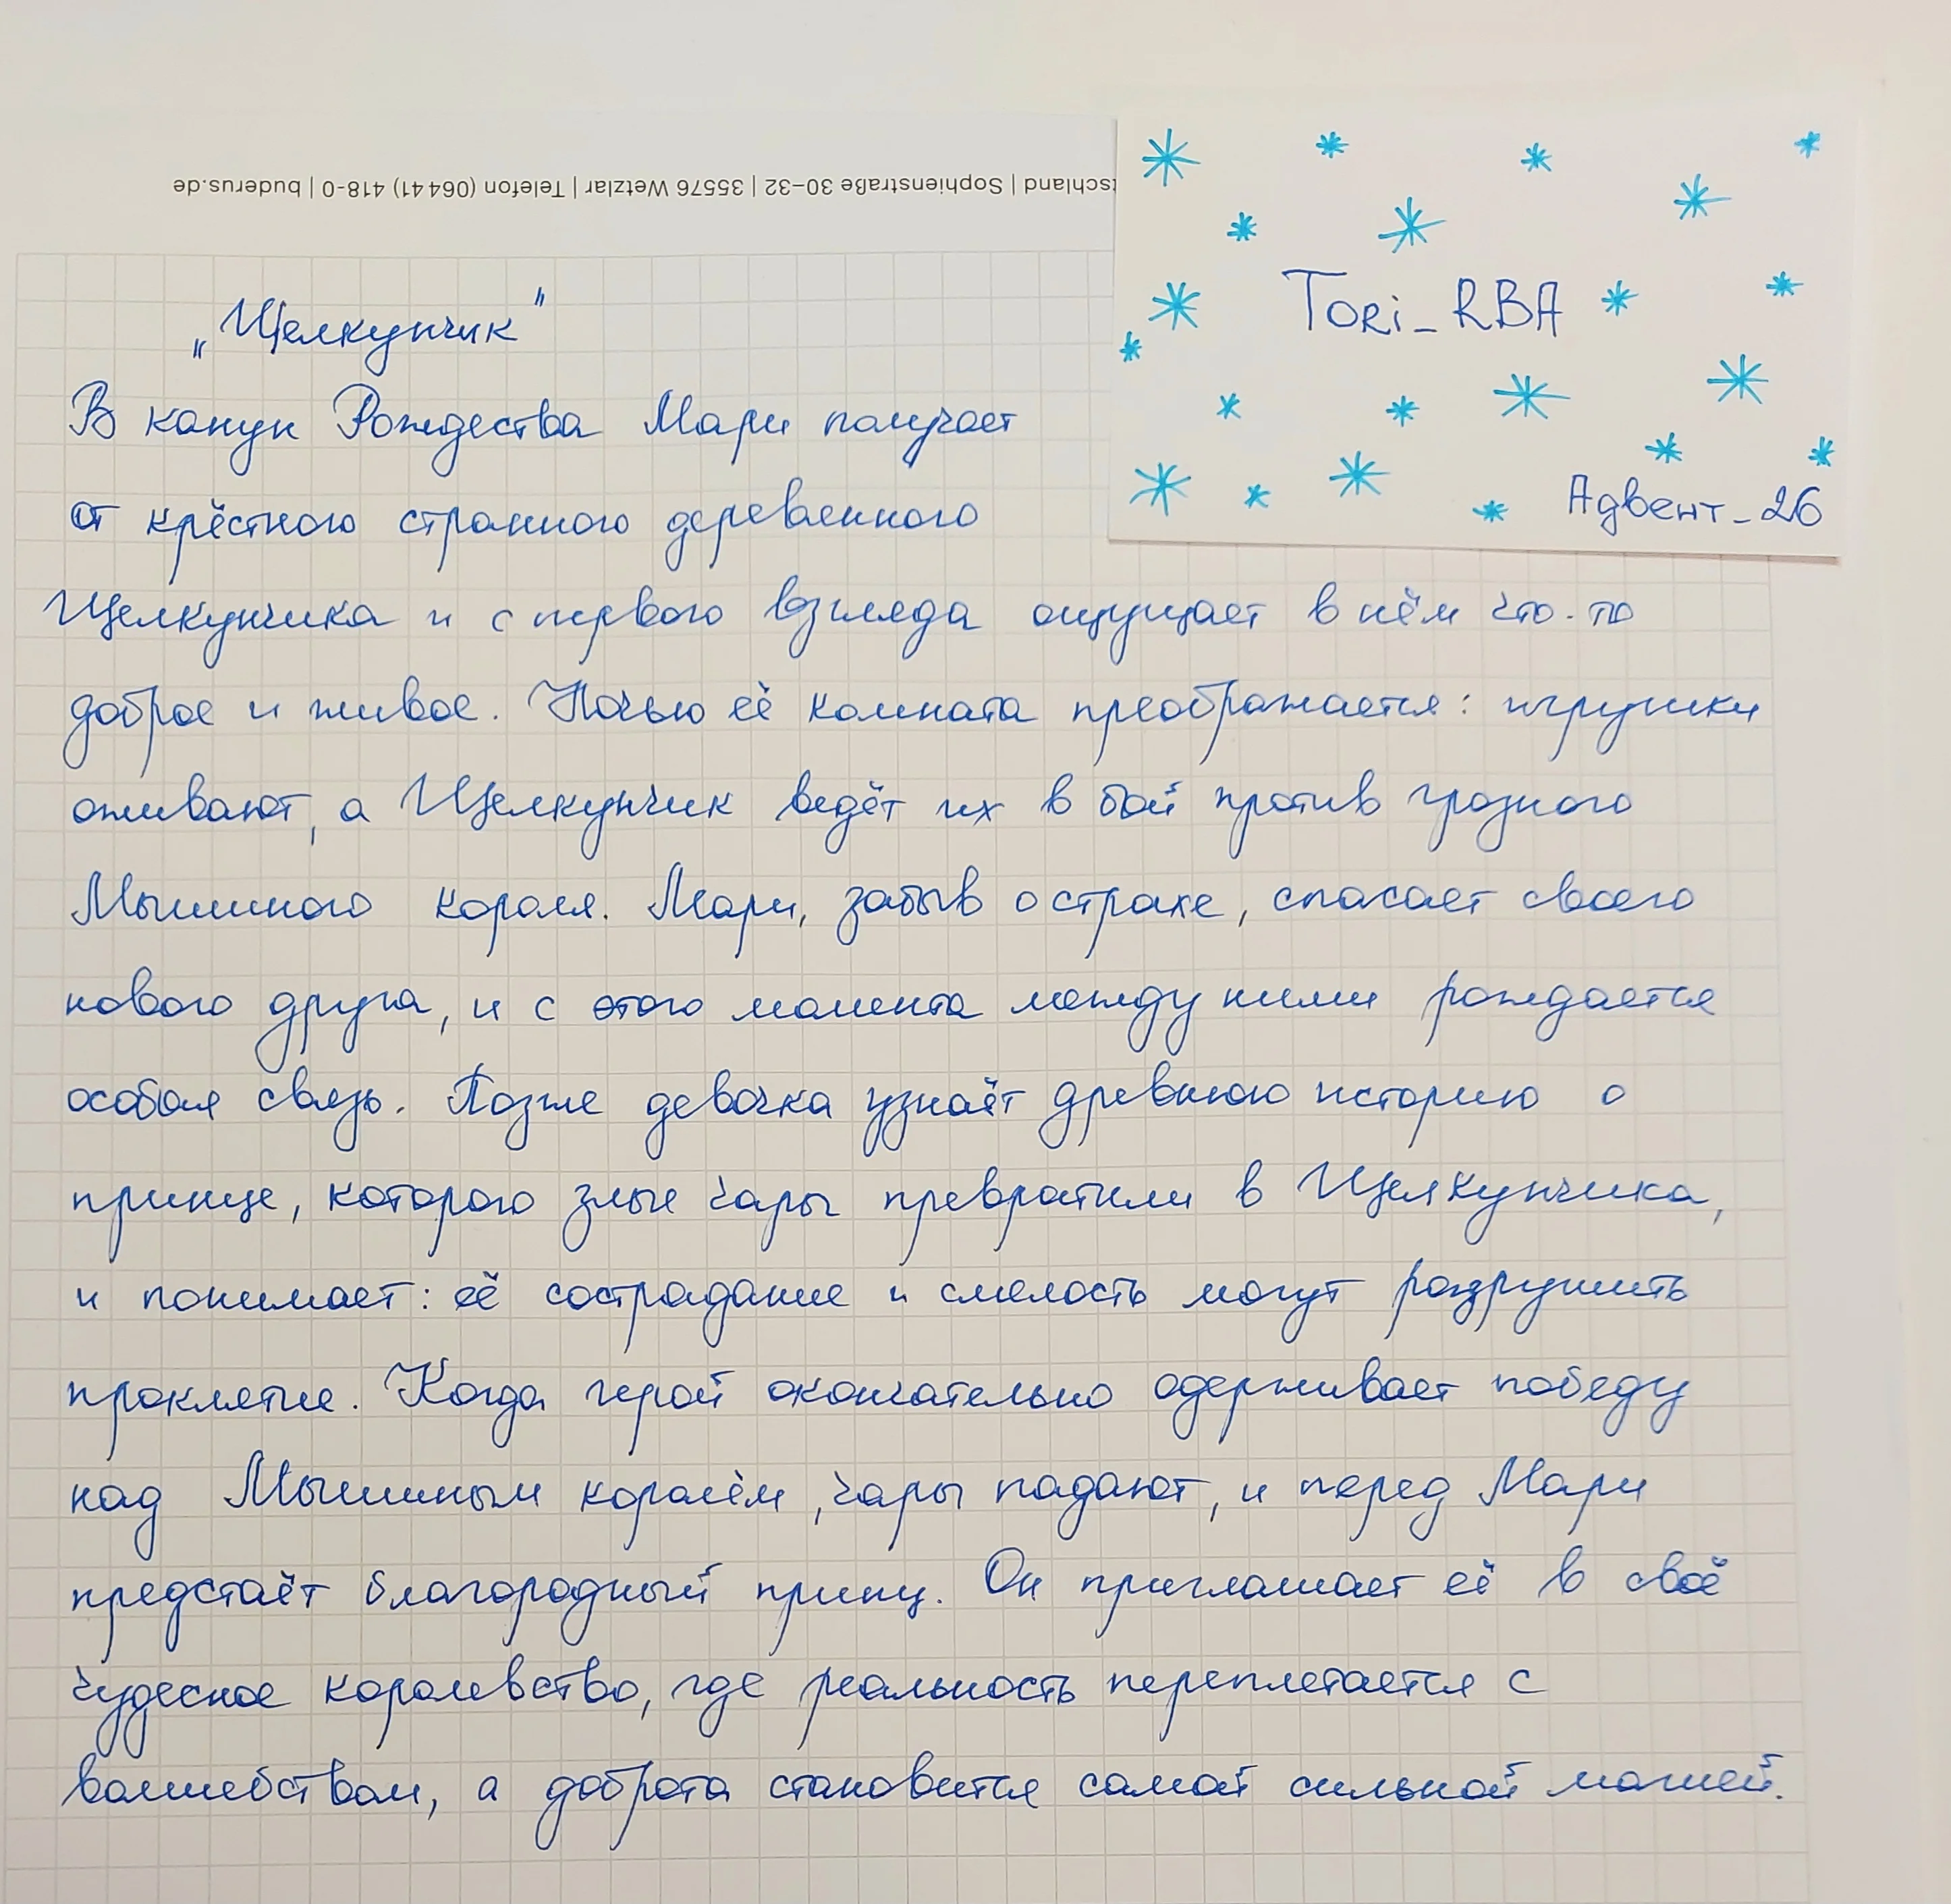 tschland | Sophienstraße 30–32 | 35576 Wetzlar | Telefon (06441) 418-0 | buderus.de
Tori_RBA
Адвент_26
„Щелкунчик"
В канун Рождества Мари получает
от крёстного странного деревянного
Щелкунчика и с первого взгляда ощущает в нём что-то
доброе и живое. Ночью её комната преображается: игрушки
оживают, а Щелкунчик ведёт их в бой против грозного
Мышиного короля. Мари, забыв о страхе, спасает своего
нового друга, и с этого момента между ними рождается
особая связь. Позже девочка узнаёт древнюю историю о
принце, которого злые чары превратили в Щелкунчика,
и понимает: её сострадание и смелость могут разрушить
проклятие. Когда герой окончательно одерживает победу
над Мышиным королём, чары падают, и перед Мари
предстаёт благородный принц. Он приглашает её в своё
чудесное королевство, где реальность переплетается с
волшебством, а доброта становится самой сильной магией.